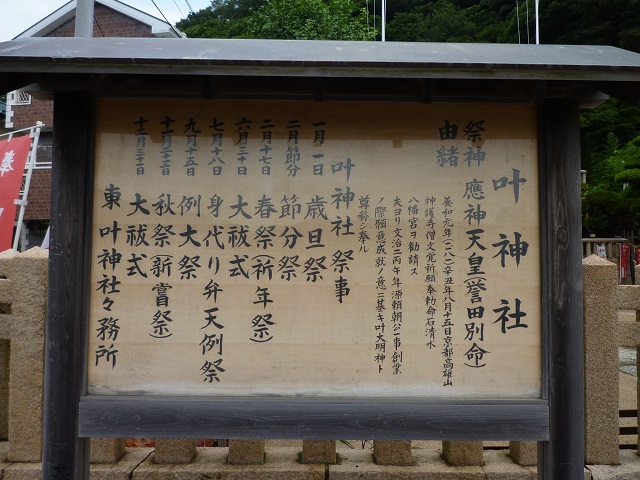 叶神社
祭神 應神天皇(誉田別命)
由緒
養和元年(一一八一)辛丑年八月十五日京都高雄山
神護寺僧文覚祈願奉勅命石清水
八幡宮ヲ勧請ス
夫ヨリ文治二丙午年源頼朝公一事創業
ノ際願意成就ノ意ニ基キ叶大明神ト
尊称シ奉ル
叶神社祭事
一月一日 歳旦祭
二月節分 節分祭
二月十七日 春祭(祈年祭)
六月三十日 大祓式
七月十八日 身代り弁天例祭
九月十五日 例大祭
十一月二十三日 秋祭(新嘗祭)
十二月三十一日 大祓式
東叶神社々務所
奉